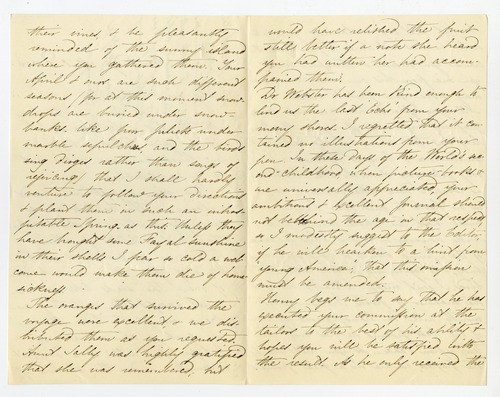 their vines, & be pleasantly
reminded of the sunny island
where you gathered them. Your
April & ours are such different
seasons (for at this moment snow
drops are buried under snow-
banks like poor folk under
marble sepulchres, and the birds
sing dirges rather than songs of
rejoicing) that I shall hardly
venture to follow your directions
& plant them in such an inhos-
pitable Spring as this. Unless they
have brought some Fayal sunshine
in their shells I fear so cold a wel-
come would make them die of home
sickness.
The oranges that survived the
voyage were excellent & we dis-
tributed them as you requested.
Aunt Sally was highly gratified
that she was remembered, but
would have relished the fruit
still better if a note she heard
you had written her had accom-
panied them.
Dr Webster has been kind enough to
lend us the last Echo from your
merry shores. I regretted that it con-
tained no illustrations from your
pen. In these days of the World's sec-
ond-childhood when picture books &
are universally appreciated, your
ambitious & excellent journal should
not be behind the age in that respect
so I modestly suggest to the Editor,
if he will hearken to a hint from
young America, that this omission
must be amended.
Henry begs me to say that he has
executed your commission at the
tailors to the best of his ability &
hopes you will be satisfied with
the result. As he only received the